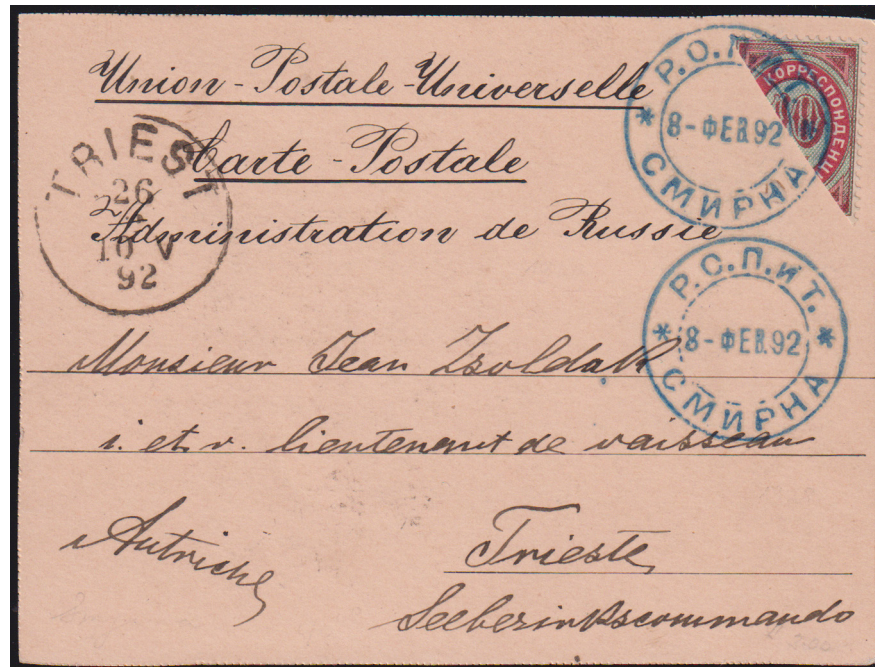 Union-Postale-Universelle
Carte-Postale
Administration de Russie
TRIEST
26
10 V
92
КОРРЕСПОНДЕНЦ
10
Р.О.П.и Т.
8-ФЕВ.92
СМИРНА
Р.О.П.и Т.
8-ФЕВ.92
СМИРНА
Monsieur Jean Zsoldak
i. et. r. lieutenant de vaisseau
Autriche
Trieste
Seebezirkscommando